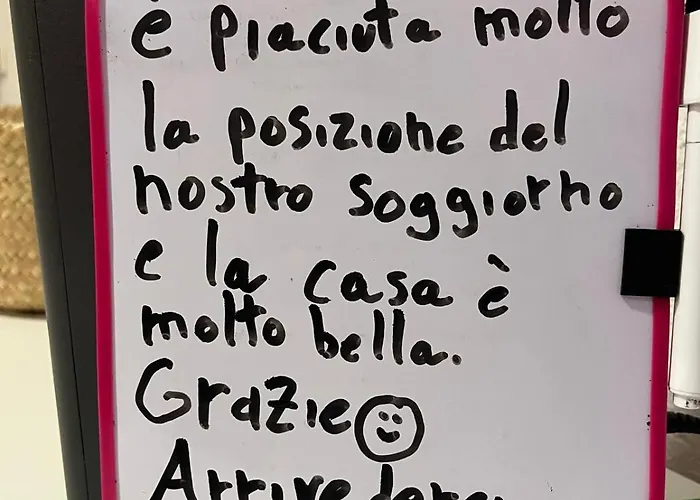 è piaciuta molto
la posizione del
nostro soggiorno
e la casa è
molto bella.
Grazie